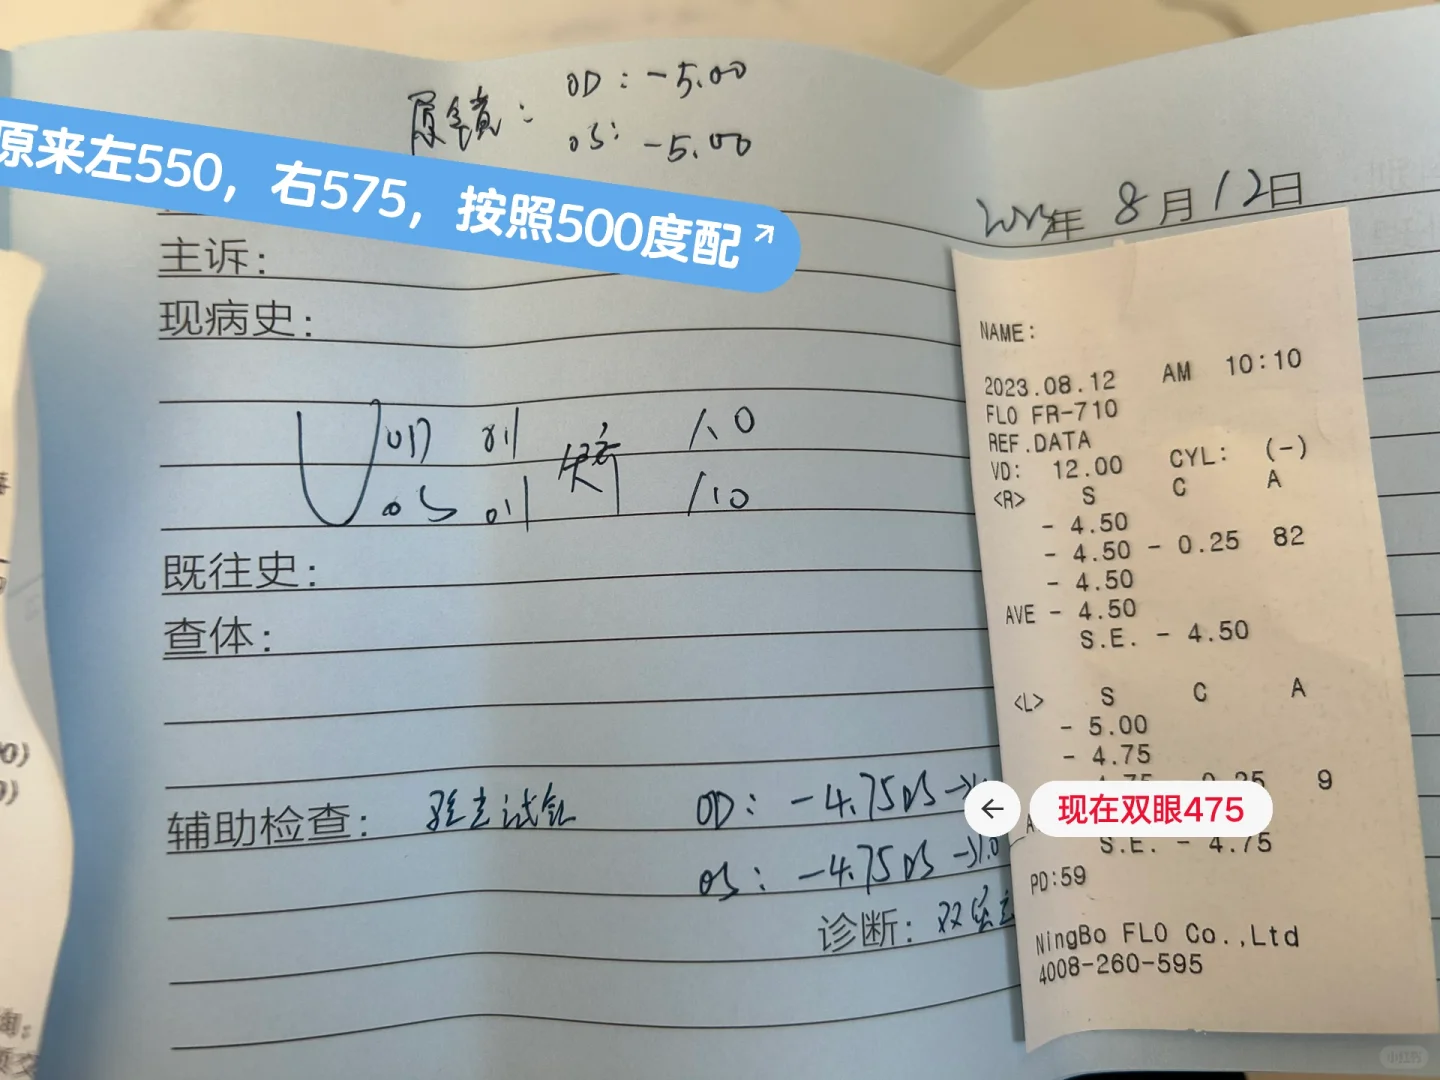 原镜: OD: -5.00
OS: -5.00
原来左550，右575，按照500度配
年 8月12日
主诉:
现病史:
V OD 0.1 矫 1.0
OS 0.1 1.0
既往史:
查体:
辅助检查: OD: -4.75DS→
OS: -4.75DS→1.0
诊断: 双
NAME:
2023.08.12 AM 10:10
FLO FR-710
REF.DATA
VD: 12.00 CYL: (-)
<R> S C A
- 4.50
- 4.50 - 0.25 82
- 4.50
AVE - 4.50
S.E. - 4.50
<L> S C A
- 5.00
- 4.75
9
现在双眼475
S.E. - 4.75
PD:59
NingBo FLO Co.,Ltd
4008-260-595
小红书